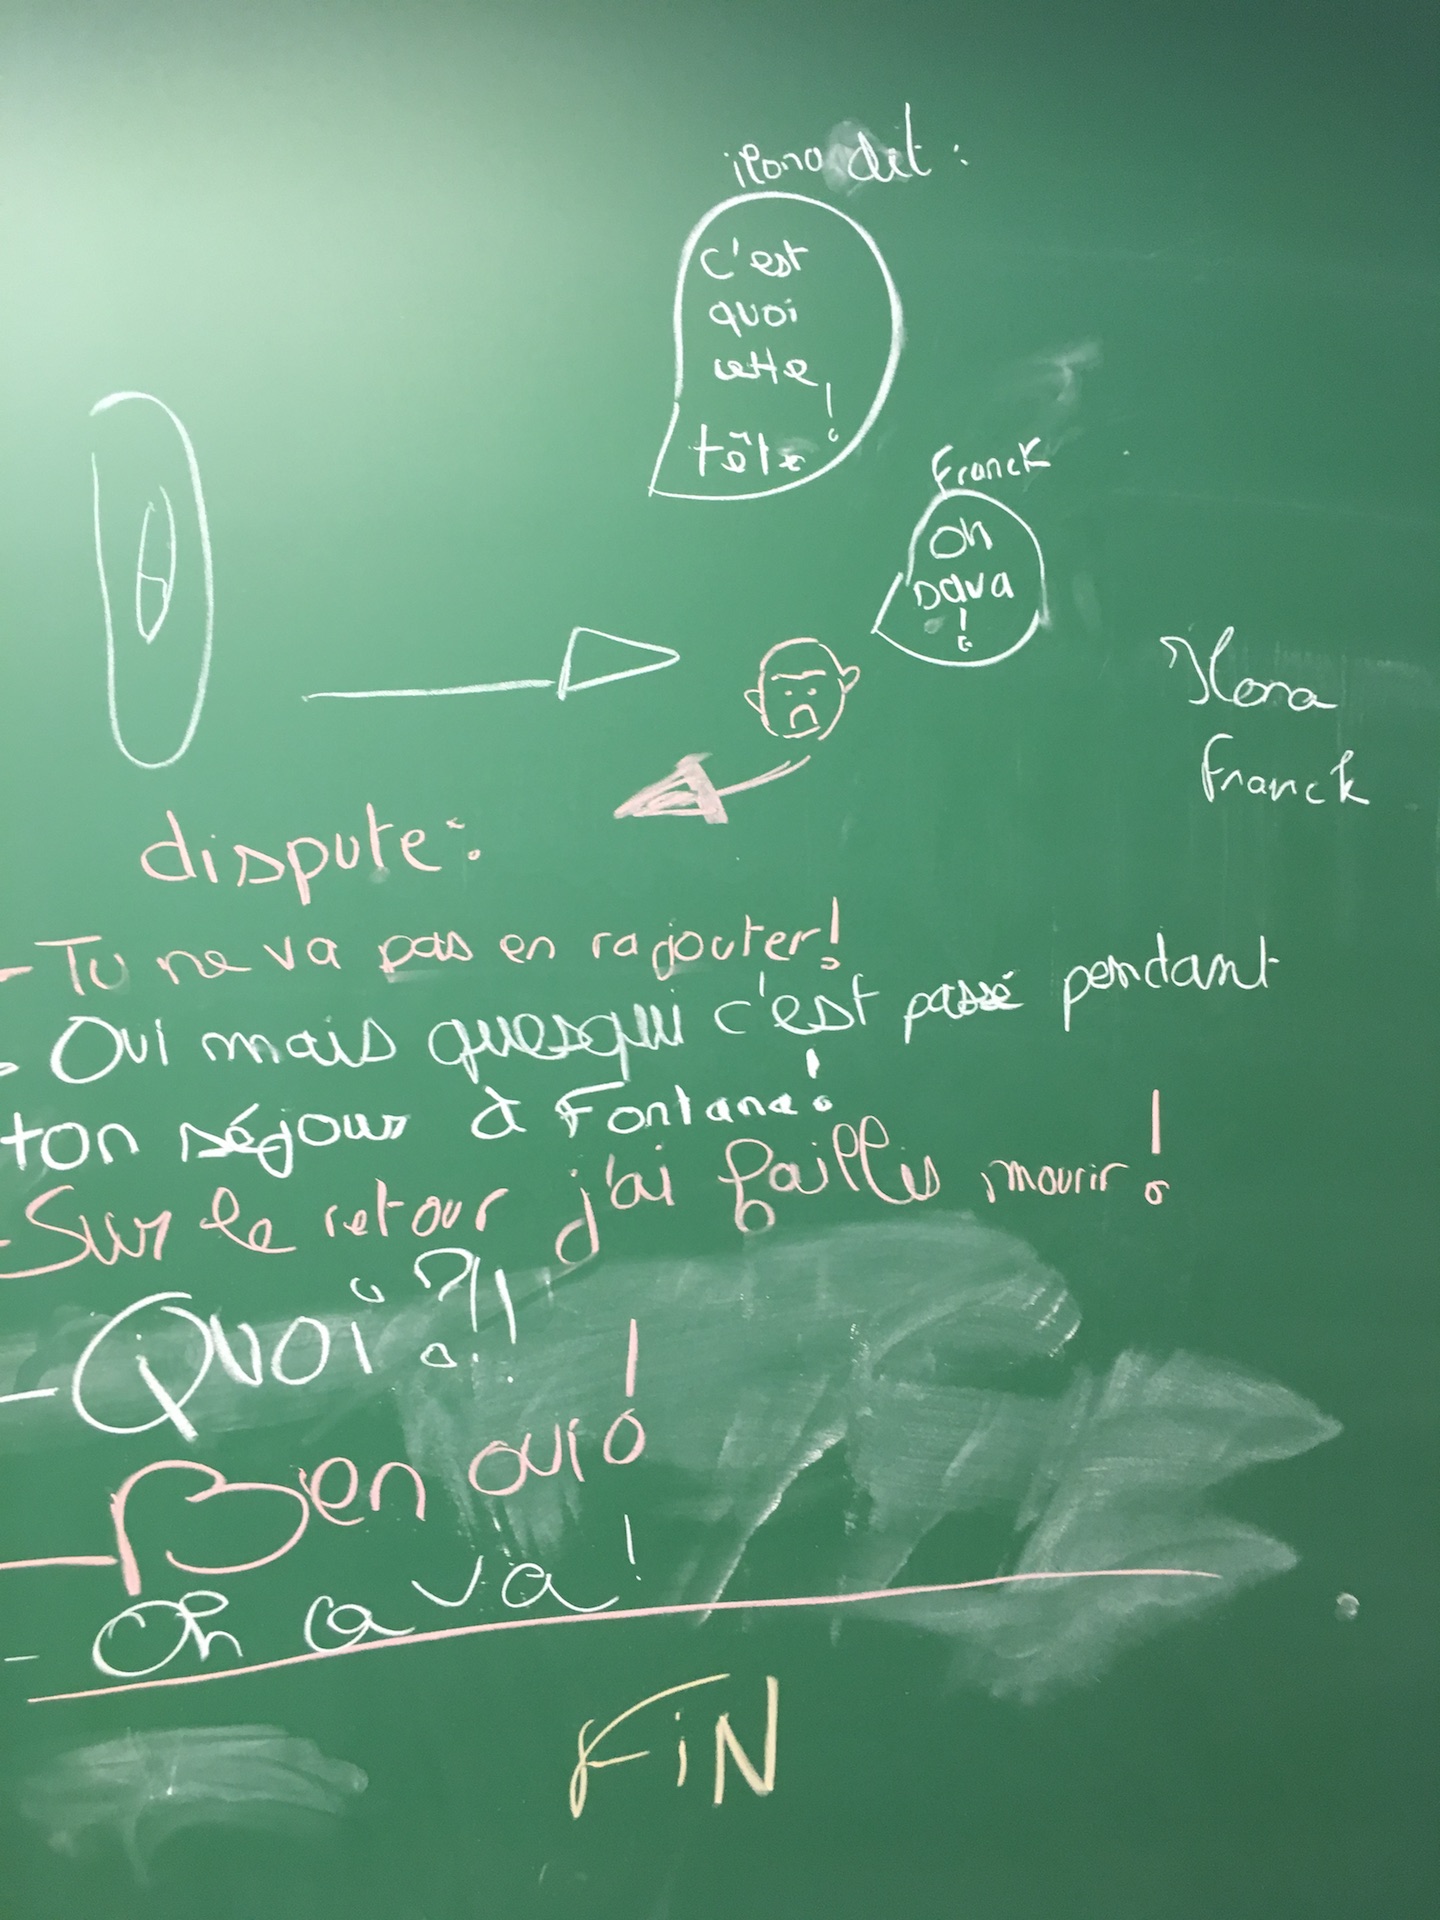 ilona dit :
c'est
quoi
cette
tête !
Franck
oh
sava
!
Ilona
Franck
dispute :
- Tu ne va pas en rajouter !
- Oui mais quesqui c'est passé pendant
ton séjour à Fontane !
- Sur le retour j'ai faillis mourir !
- Quoi ?!!
- Ben oui !
- Oh ça va !
FiN